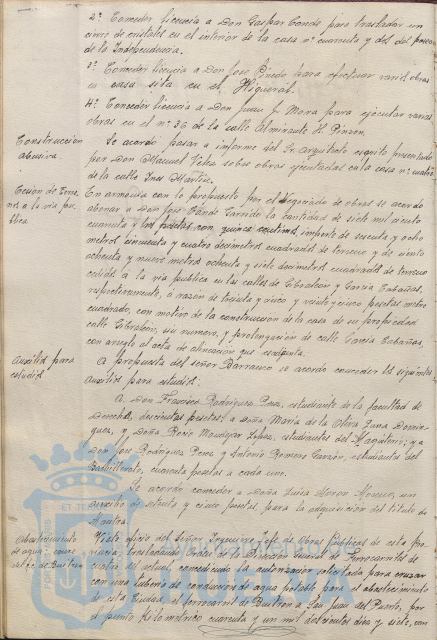 2º Conceder licencia a Don Gaspar Conde para trasladar un
cierre de cristales en el interior de la casa nº cuarenta y dos del paseo
de la Independencia.
3º Conceder licencia a Don José Pinedo para efectuar varias obras
en casa sita en el Higueral.
4º Conceder licencia a Don Juan J. Mora para ejecutar varias
obras en el nº 36 de la calle Almirante H. Pinzon.
Construccion
abusiva.
Se acordó pasar a informe del Sr. Arquitecto escrito presentado
por Don Manuel Velez sobre obras ejecutadas en la casa nº cuatro
de la calle Ines Martin.
Cesion de terre-
nos a la via pu-
blica
En armonia con lo propuesto por el Negociado de obras se acordó
abonar a Don José Conde Garrido la cantidad de siete mil ciento
cuarenta y pesetas con quince centimos importe de sesenta y ocho
metros cincuenta y cuatro decimetros cuadrados de terreno y de ciento
ochenta y nueve metros ochenta y siete decimetros cuadrados de terreno
cedidos a la via publica en las calles de Gibraleon y Garcia Cabañas,
respectivamente, a razon de treinta y cinco y veinticinco pesetas metro
cuadrado, con motivo de la construccion de la casa de su propiedad
calle Gibraleon, sin numero, y prolongacion de calle Garcia Cabañas,
con arreglo al acta de alineacion que se adjunta.
Auxilios para
estudios
A propuesta del señor Barrasco se acordó conceder los siguientes
auxilios para estudios:
A Don Francisco Rodriguez Perez, estudiante de la facultad de
Derecho, doscientas pesetas; a Doña Maria de la Oliva Luna Domin-
guez, y Doña Rocio Lopez, estudiantes del Magisterio; y a
Don José Rodriguez Perez y Antonio Romero Garzón, estudiantes del
Bachillerato, cuarenta pesetas a cada uno.
Se acordó conceder a Doña Luisa un
auxilio de setenta y cinco pesetas para la adquisicion del titulo de
Maestra.
Abastecimiento
de agua: cruce
del f.c. de Buitron
Visto oficio del señor Ingeniero Jefe de Obras Publicas de esta pro-
vincia, trasladando orden de la Direccion General de Ferrocarriles de
cuatro del actual, concediendo la autorizacion solicitada para cruzar
con una tuberia de conduccion de agua potable para el abastecimiento
de esta Ciudad, el ferrocarril de Buitron a San Juan del Puerto, por
el punto kilometrico cuarenta y un mil doscientos diez y siete, con